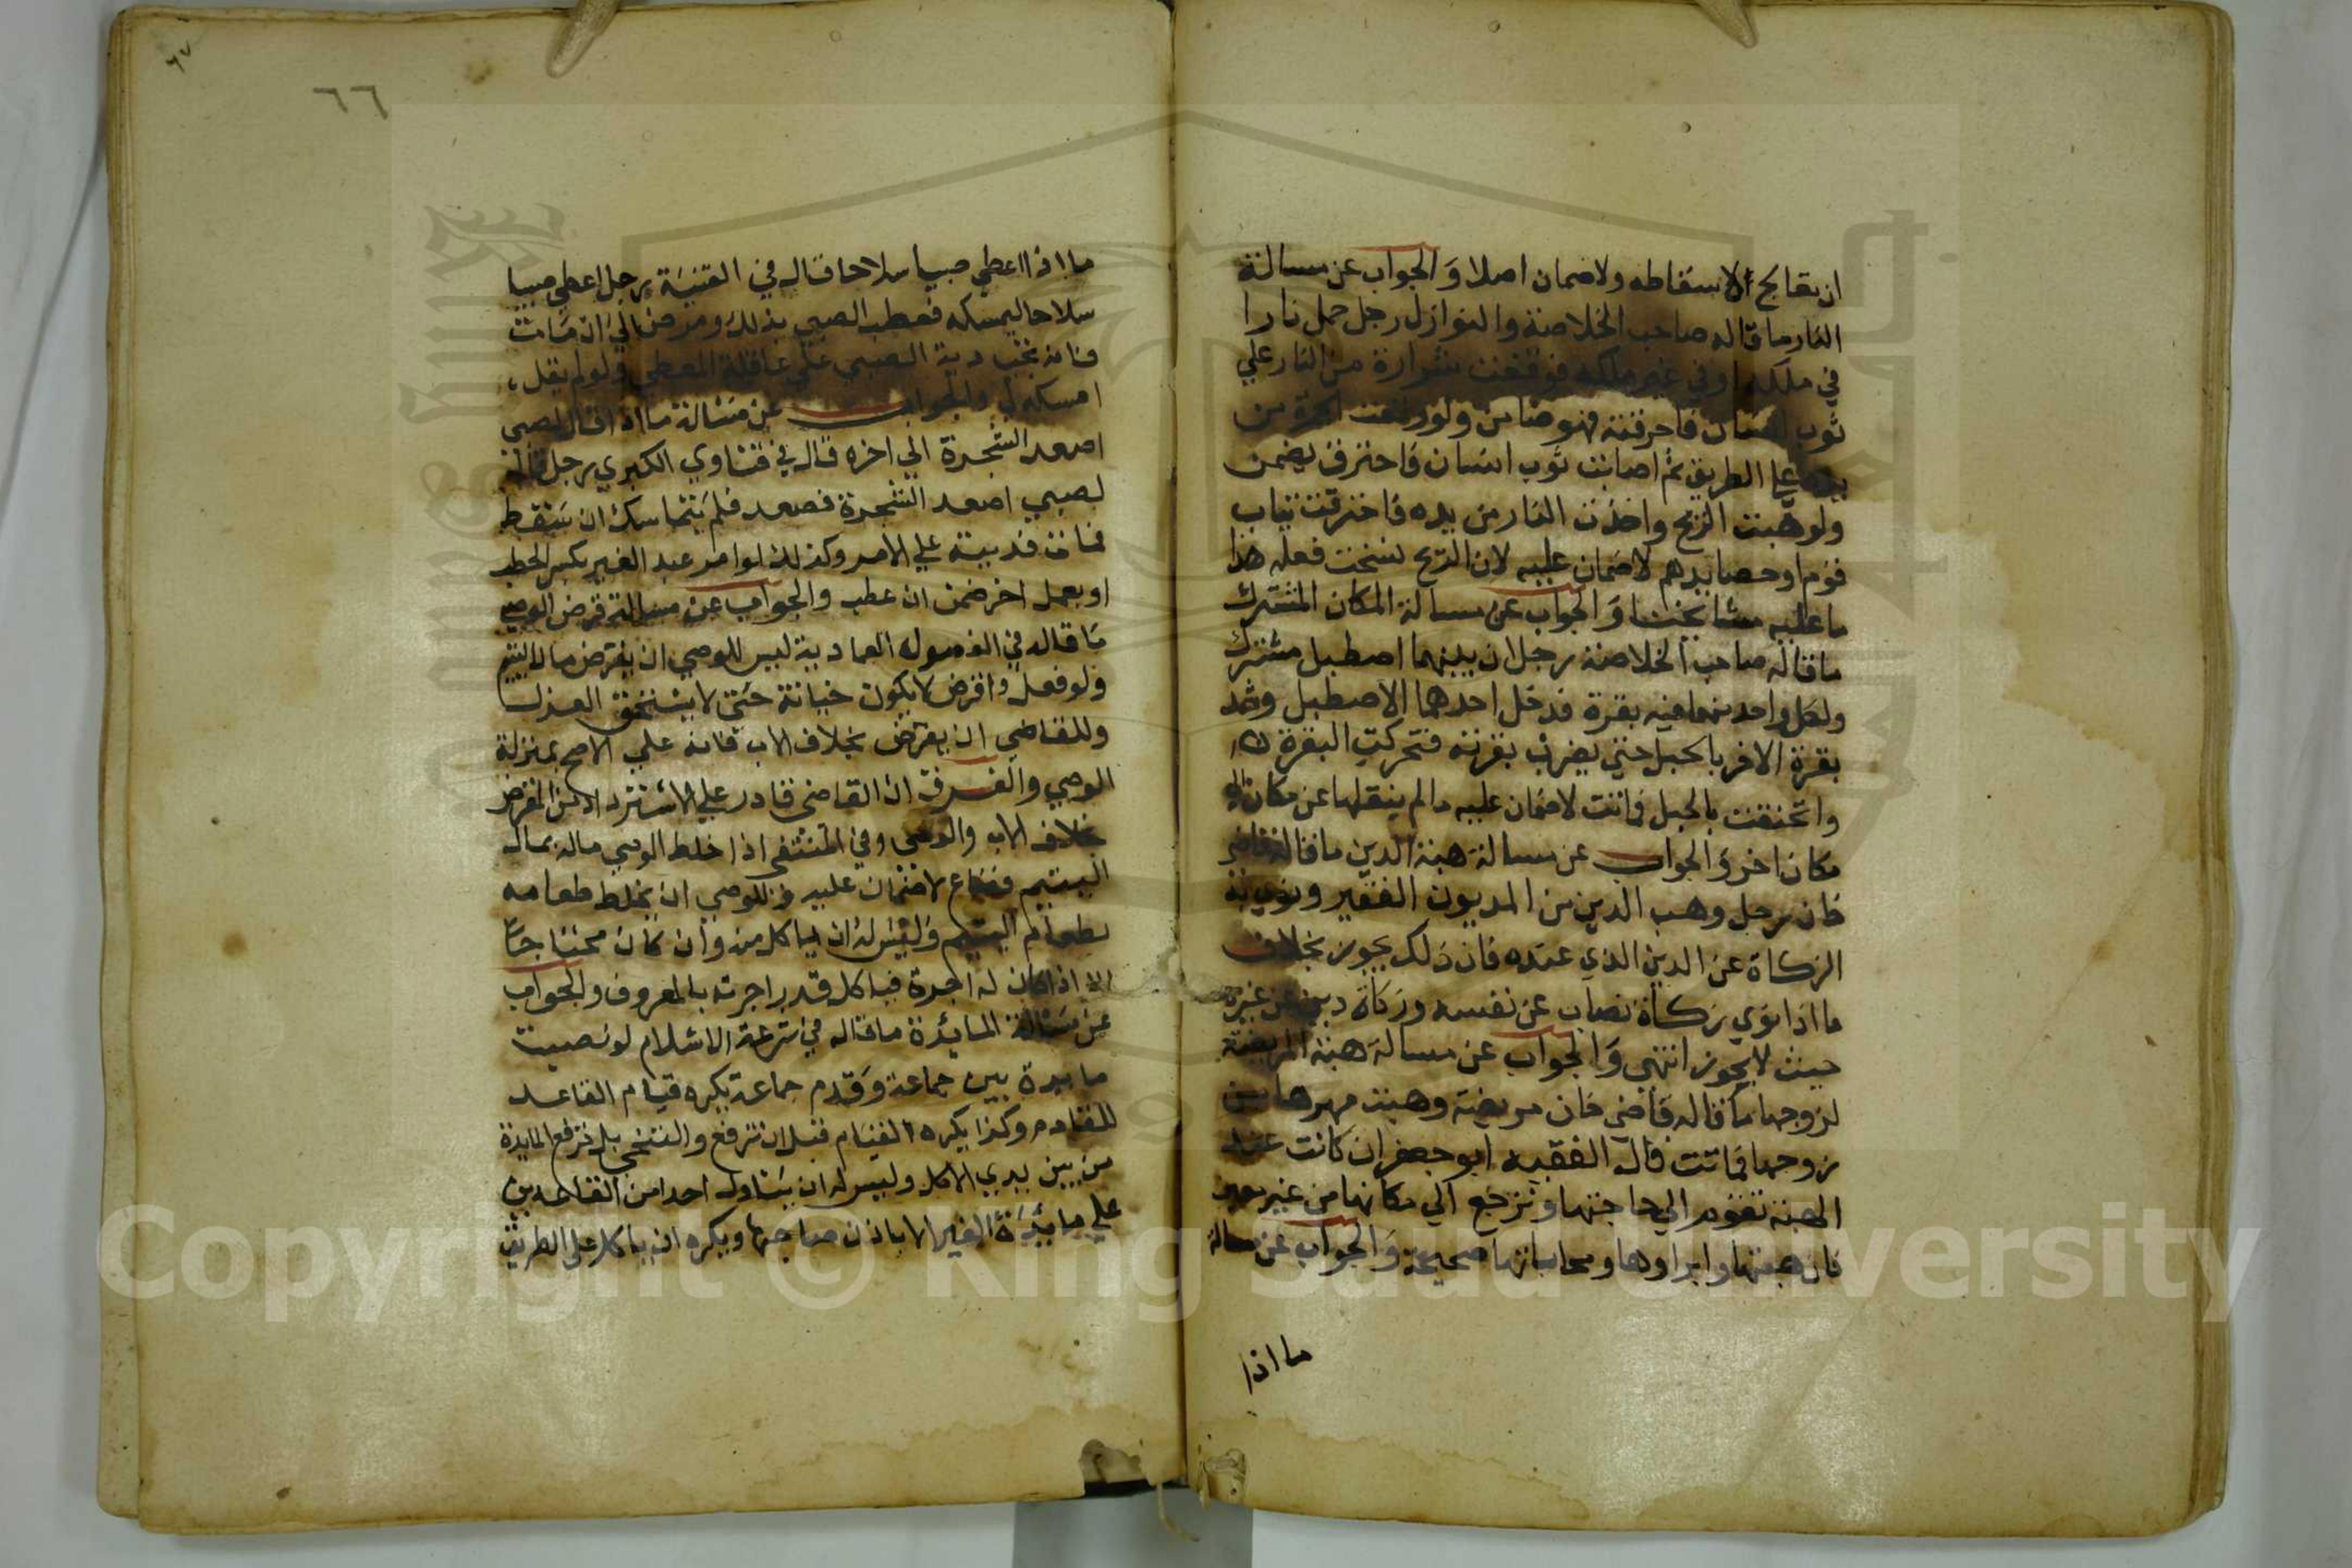 ان يعالج لاسقاطه ولا ضمان اصلا والجواب عن مسالة
النار ما قاله صاحب الخلاصة والنوازل رجل حمل نارا
في ملكه او في غير ملكه فوقعت شرارة من النار علي
ثوب انسان فاحرقته فهو ضامن ولو وقعت من
يده علي الطريق ثم اصابت ثوب انسان فاحترق يضمن
ولو هبت الريح واخذت النار من يده فاحترقت ثياب
قوم او حصايدهم لا ضمان عليه لان الريح نسخت فعله هذا
ما عليه مشايخنا والجواب عن مسالة المكان المشترك
ما قاله صاحب الخلاصة رجلان بينهما اصطبل مشترك
ولكل واحد منهما فيه بقرة فدخل احدهما الاصطبل وشد
بقرة الاخر بالحبل حتي يضرب بقرته فتحركت البقرة
واختنقت بالحبل فماتت لا ضمان عليه مالم ينقلها عن مكان الي
مكان اخر والجواب عن مسالة هبة الدين ما قاله قاضي
خان رجل وهب الدين من المديون الفقير ونوي به
الزكاة عن الدين الذي عنده فان ذلك يجوز بخلاف
ما اذا نوي زكاة نصاب عن نفسه وزكاة دين عن غيره
حيث لا يجوز انتهي والجواب عن مسالة هبة المريضة
لزوجها ما قاله قاضي خان مريضة وهبت مهرها من
زوجها فماتت قال الفقيه ابو جعفر ان كانت عند
الهبة تقوم الي حاجتها وترجع الي مكانها من غير معين
فان هبتها وابراوها ومحاباتها صحيحة والجواب عن مسالة
ما اذا
٦٧
٦٦
ما اذا اعطي صبيا سلاحا قال في القنية رجل اعطي صبيا
سلاحا ليمسكه فعطب الصبي بذلك ومرض الي ان مات
فانه تجب دية الصبي علي عاقلة المعطي ولو لم يقل
امسكه لي والجواب عن مسالة ما اذا قال لصبي
اصعد الشجرة الي اخره قال في فتاوي الكبري رجل قال
لصبي اصعد الشجرة فصعد فلم يتماسك ان سقط
فمات فديته علي الامر وكذلك لو امر عبد الغير بكسر الحطب
او بعمل اخر ضمن ان عطب والجواب عن مسالة قرض الوصي
ما قاله في الفصول العمادية ليس للوصي ان يقرض مال اليتيم
ولو فعل واقرض لا يكون خيانة حتي لا يستحق العزل
وللقاضي ان يقرض بخلاف الاب فانه علي الاصح بمنزلة
الوصي والفرق ان القاضي قادر علي الاسترداد من المقرض
بخلاف الاب والوصي وفي المنتقي اذا خلط الوصي ماله بمال
اليتيم فضاع لا ضمان عليه وللوصي ان يخلط طعامه
بطعام اليتيم وليس له ان ياكل منه وان كان محتاجا
الا اذا كان له اجرة فياكل قدر اجرته بالمعروف والجواب
عن مسالة المايدة ما قاله في شرعة الاسلام لو نصبت
مايدة بين جماعة وقدم جماعة يكره قيام القاعد
للقادم وكذا يكره القيام قبل ان ترفع والتنحي بل ترفع المايدة
من بين يدي الاكل وليس له ان يناول احدا من القاعدين
علي مايدة الغير الا باذن صاحبها ويكره ان ياكل علي الطريق
Copyright © King Saud University